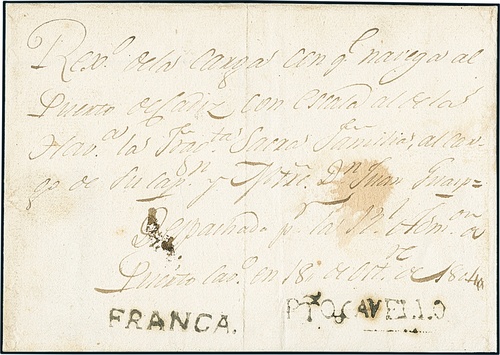 Rexº. dela carga con qe. navega al
Puerto de Cadiz con escala al de la
Havª. la Fragta. Sacra Familia, al car-
go de su capn. y Mtre. Dn. Juan
Despachada pr. la Rl. Admon. de
Puerto Cavº. en 18 de Octre. de 1804
FRANCA. PTOCAVELLO